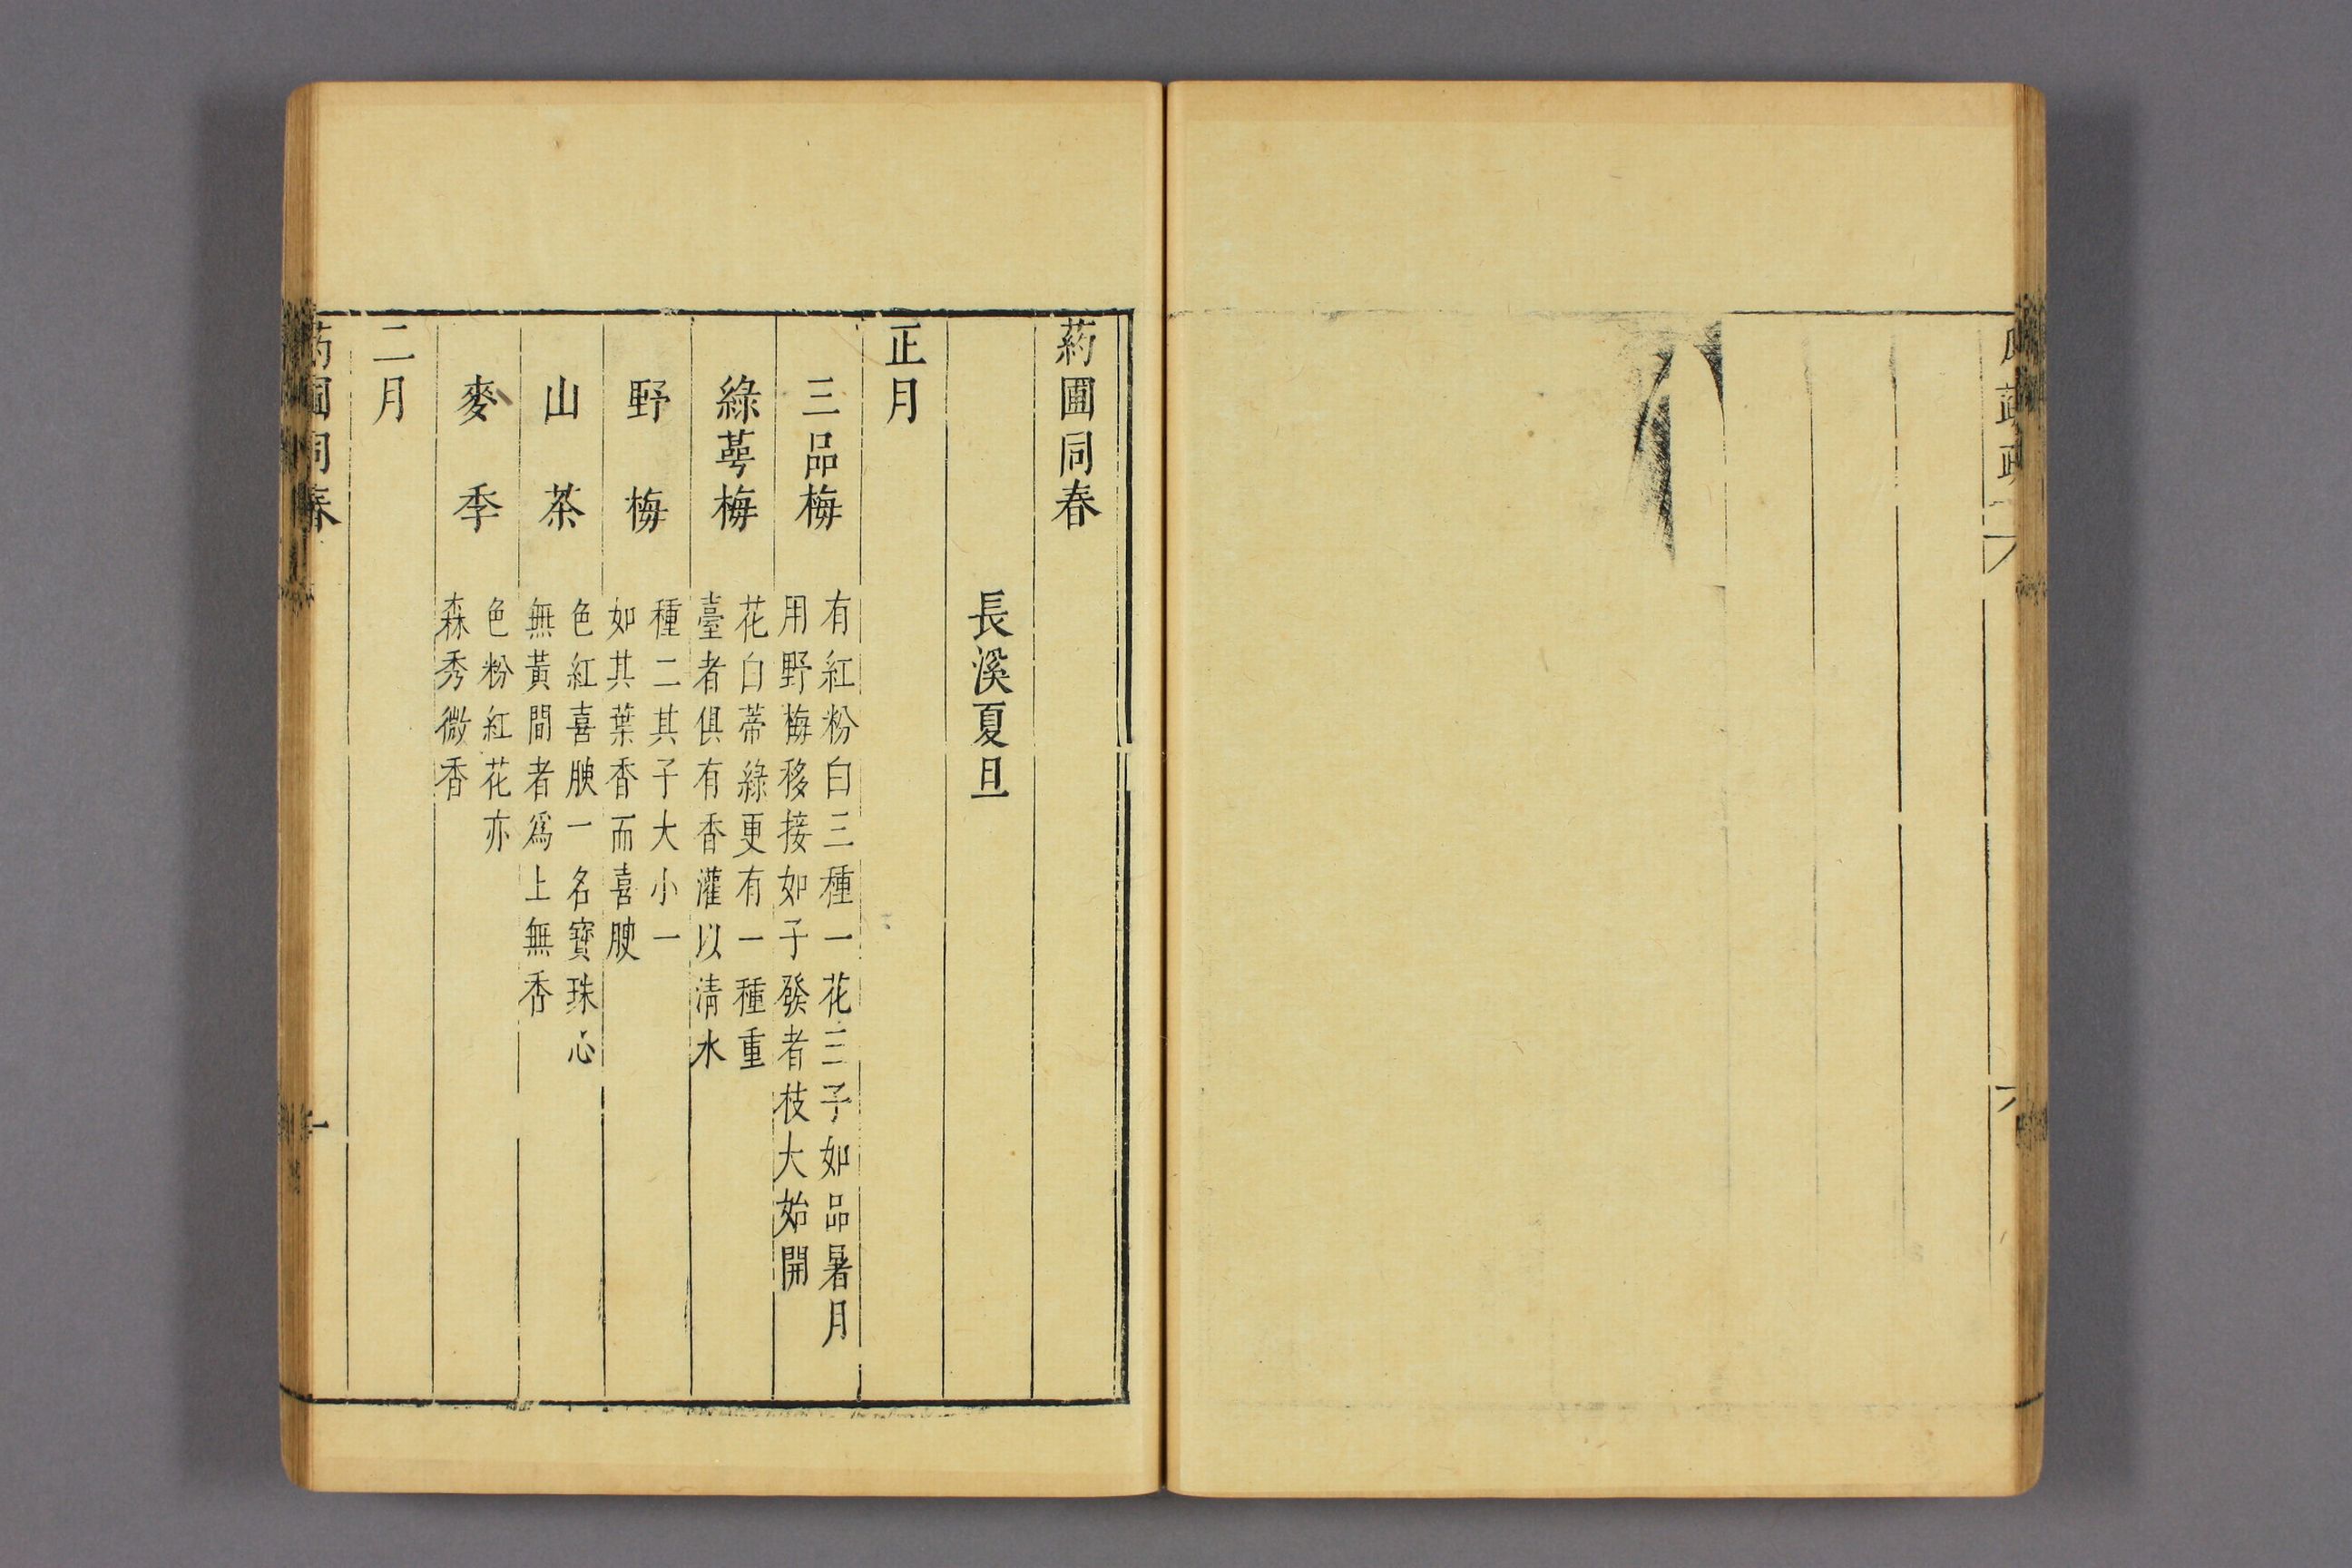 葯圃同春
長溪夏旦
正月
三品梅
有紅粉白三種一花三子如品暑月
用野梅移接如子發者枝大始開
綠萼梅
花白蒂綠更有一種重
臺者俱有香灌以清水
野梅
種二其子大小一
如其葉香而喜腴
山茶
色紅喜腴一名寶珠心
無黃間者爲上無香
麥李
色粉紅花亦
森秀微香
二月
葯圃同春
一